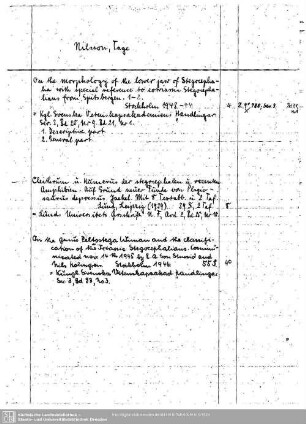 Nilsson, Tage
On the morphology of the lower jaw of Stegocepha-
lia with special reference to eotriassic Stegocepha-
lians from Spitsbergen. 1-2.
Stockholm 1943-44 4
= Kgl. Svenska Vetenskapsakademiens Handlingar
Ser. 3, Bd 20, Nr 9. Bd 21, Nr 1.
1. Descriptive part
2. General part
Cleithrum u. Humerus der Stegocephalen u. rezenten
Amphibien. Auf Grund neuer Funde von Plagio-
saurus depressus Jaekel. Mit 5 Textabb. u. 2 Taf.
Lund, Leipzig (1939). 39 S., 2 Taf. 8
= Lunds Universitets Årsskrift N. F., Avd 2, Bd 35, Nr 10.
On the genus Peltostega Wiman and the classifi-
cation of the Triassic Stegocephalians. Commu-
nicated nov. 14th 1945 by E. A:son Stensiö and
Nils Holmgren. Stockholm 1946. 55 S. 4°
= Kungl. Svenska Vetenskapsakad. handlingar
Ser 3, Bd 23, No 3.